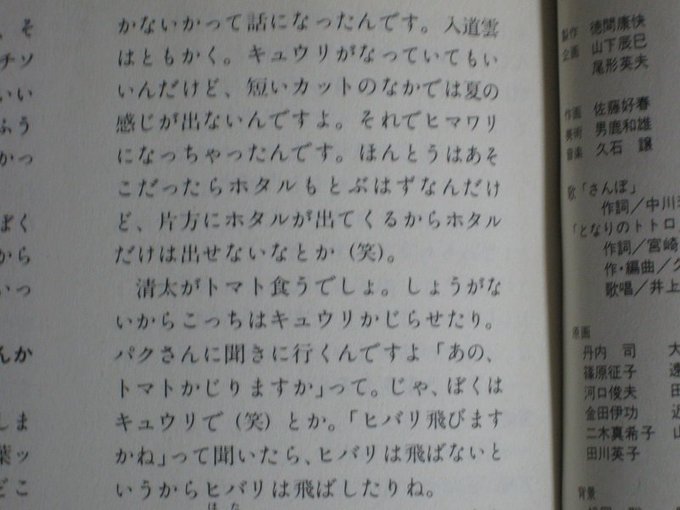 、そ
チソ
いい
ふう
かっ
ぼく
から
いっ
んか
しま
葉ッ
どこ
かないかって話になったんです。入道雲
はともかく。キュウリがなっていてもい
いんだけど、短いカットのなかでは夏の
感じが出ないんですよ。それでヒマワリ
になっちゃったんです。ほんとうはあそ
こだったらホタルもとぶはずなんだけ
ど、片方にホタルが出てくるからホタル
だけは出せないなとか（笑）。
清太がトマト食うでしょ。しょうがな
いからこっちはキュウリかじらせたり。
パクさんに聞きに行くんですよ「あの、
トマトかじりますか」って。じゃ、ぼくは
キュウリで（笑）とか。「ヒバリ飛びます
かね」って聞いたら、ヒバリは飛ばないと
いうからヒバリは飛ばしたりね。
製作 徳間康快
企画 山下辰巳
尾形英夫
作画 佐藤好春
美術 男鹿和雄
音楽 久石 譲
歌「さんぽ」
作詞／中川
「となりのトトロ
作詞／宮崎
作・編曲／久
歌唱／井上
原画
丹内 司 大
篠原征子 遠
河口俊夫 田
金田伊功 近
二木真希子 山
田川英子
背景